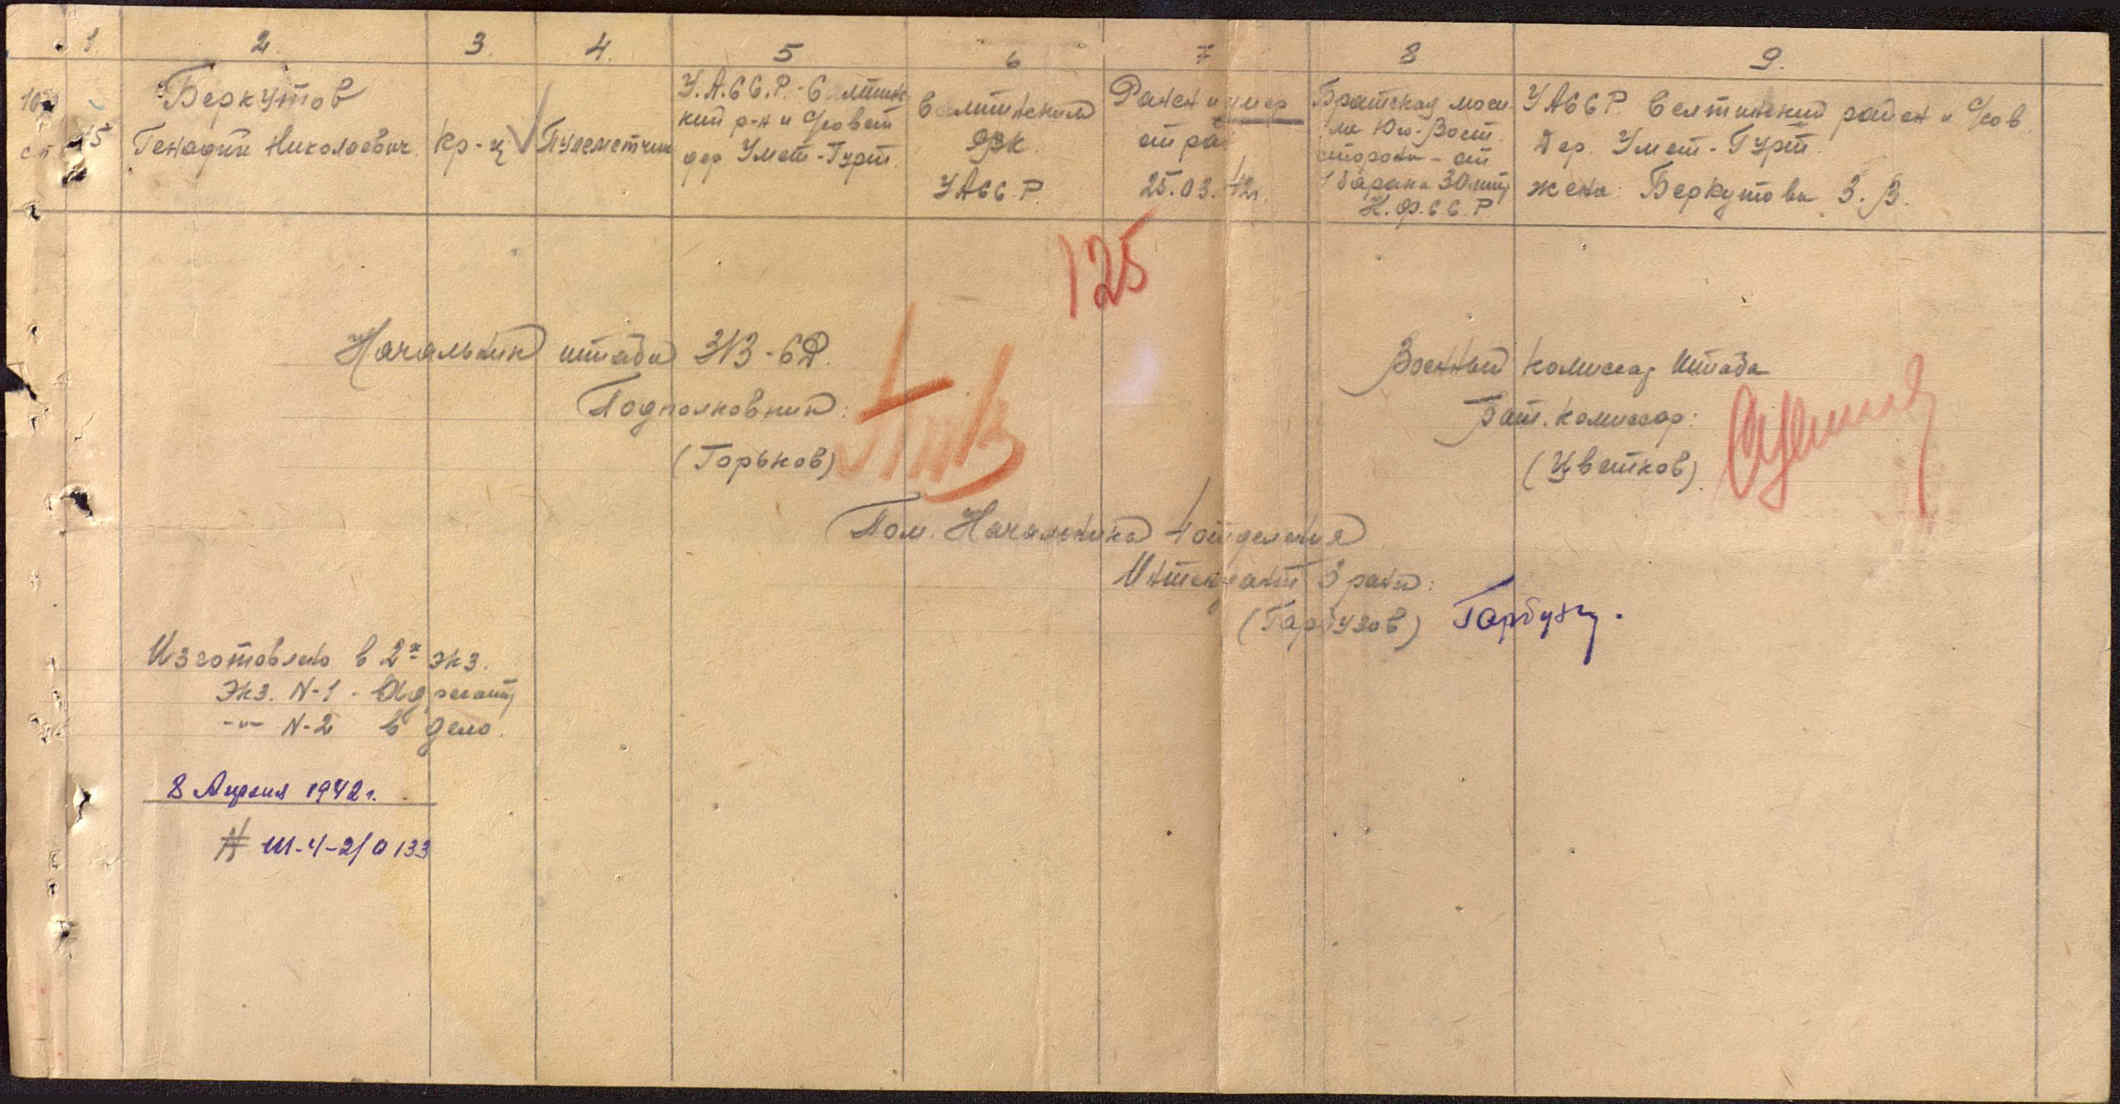 1 2 3. 4. 5 6 7 8 9.
Беркутов
Генадий Николаевич
кр-ц
Пулеметчик
У.А.С.С.Р.-Селтинс
кий р-н и с/совет
дер Умет-Гурт
Селтинским
РВК
УАССР
Ранен и умер
от ран
25.03.42г.
Братская моги
ла Юго-Вост.
сторона-от
барака 30 мтр
К.Ф.ССР
УАССР Селтинский район и с/сов
Дер. Умет-Гурт.
жена: Беркутова З.В.
125
Начальник штаба 313-СД.
Подполковник:
(Горьков)
Военный комиссар Штаба
Бат. комиссар:
(Цветков)
Пом. Начальника 4 отделения
Интендант 3 ранга:
(Гарбузов)
Изготовлено в 2х экз.
Экз. N-1 - Адресату
-"- N-2 в дело.
8 Апреля 1942г.
№ Ш-4-2/0133